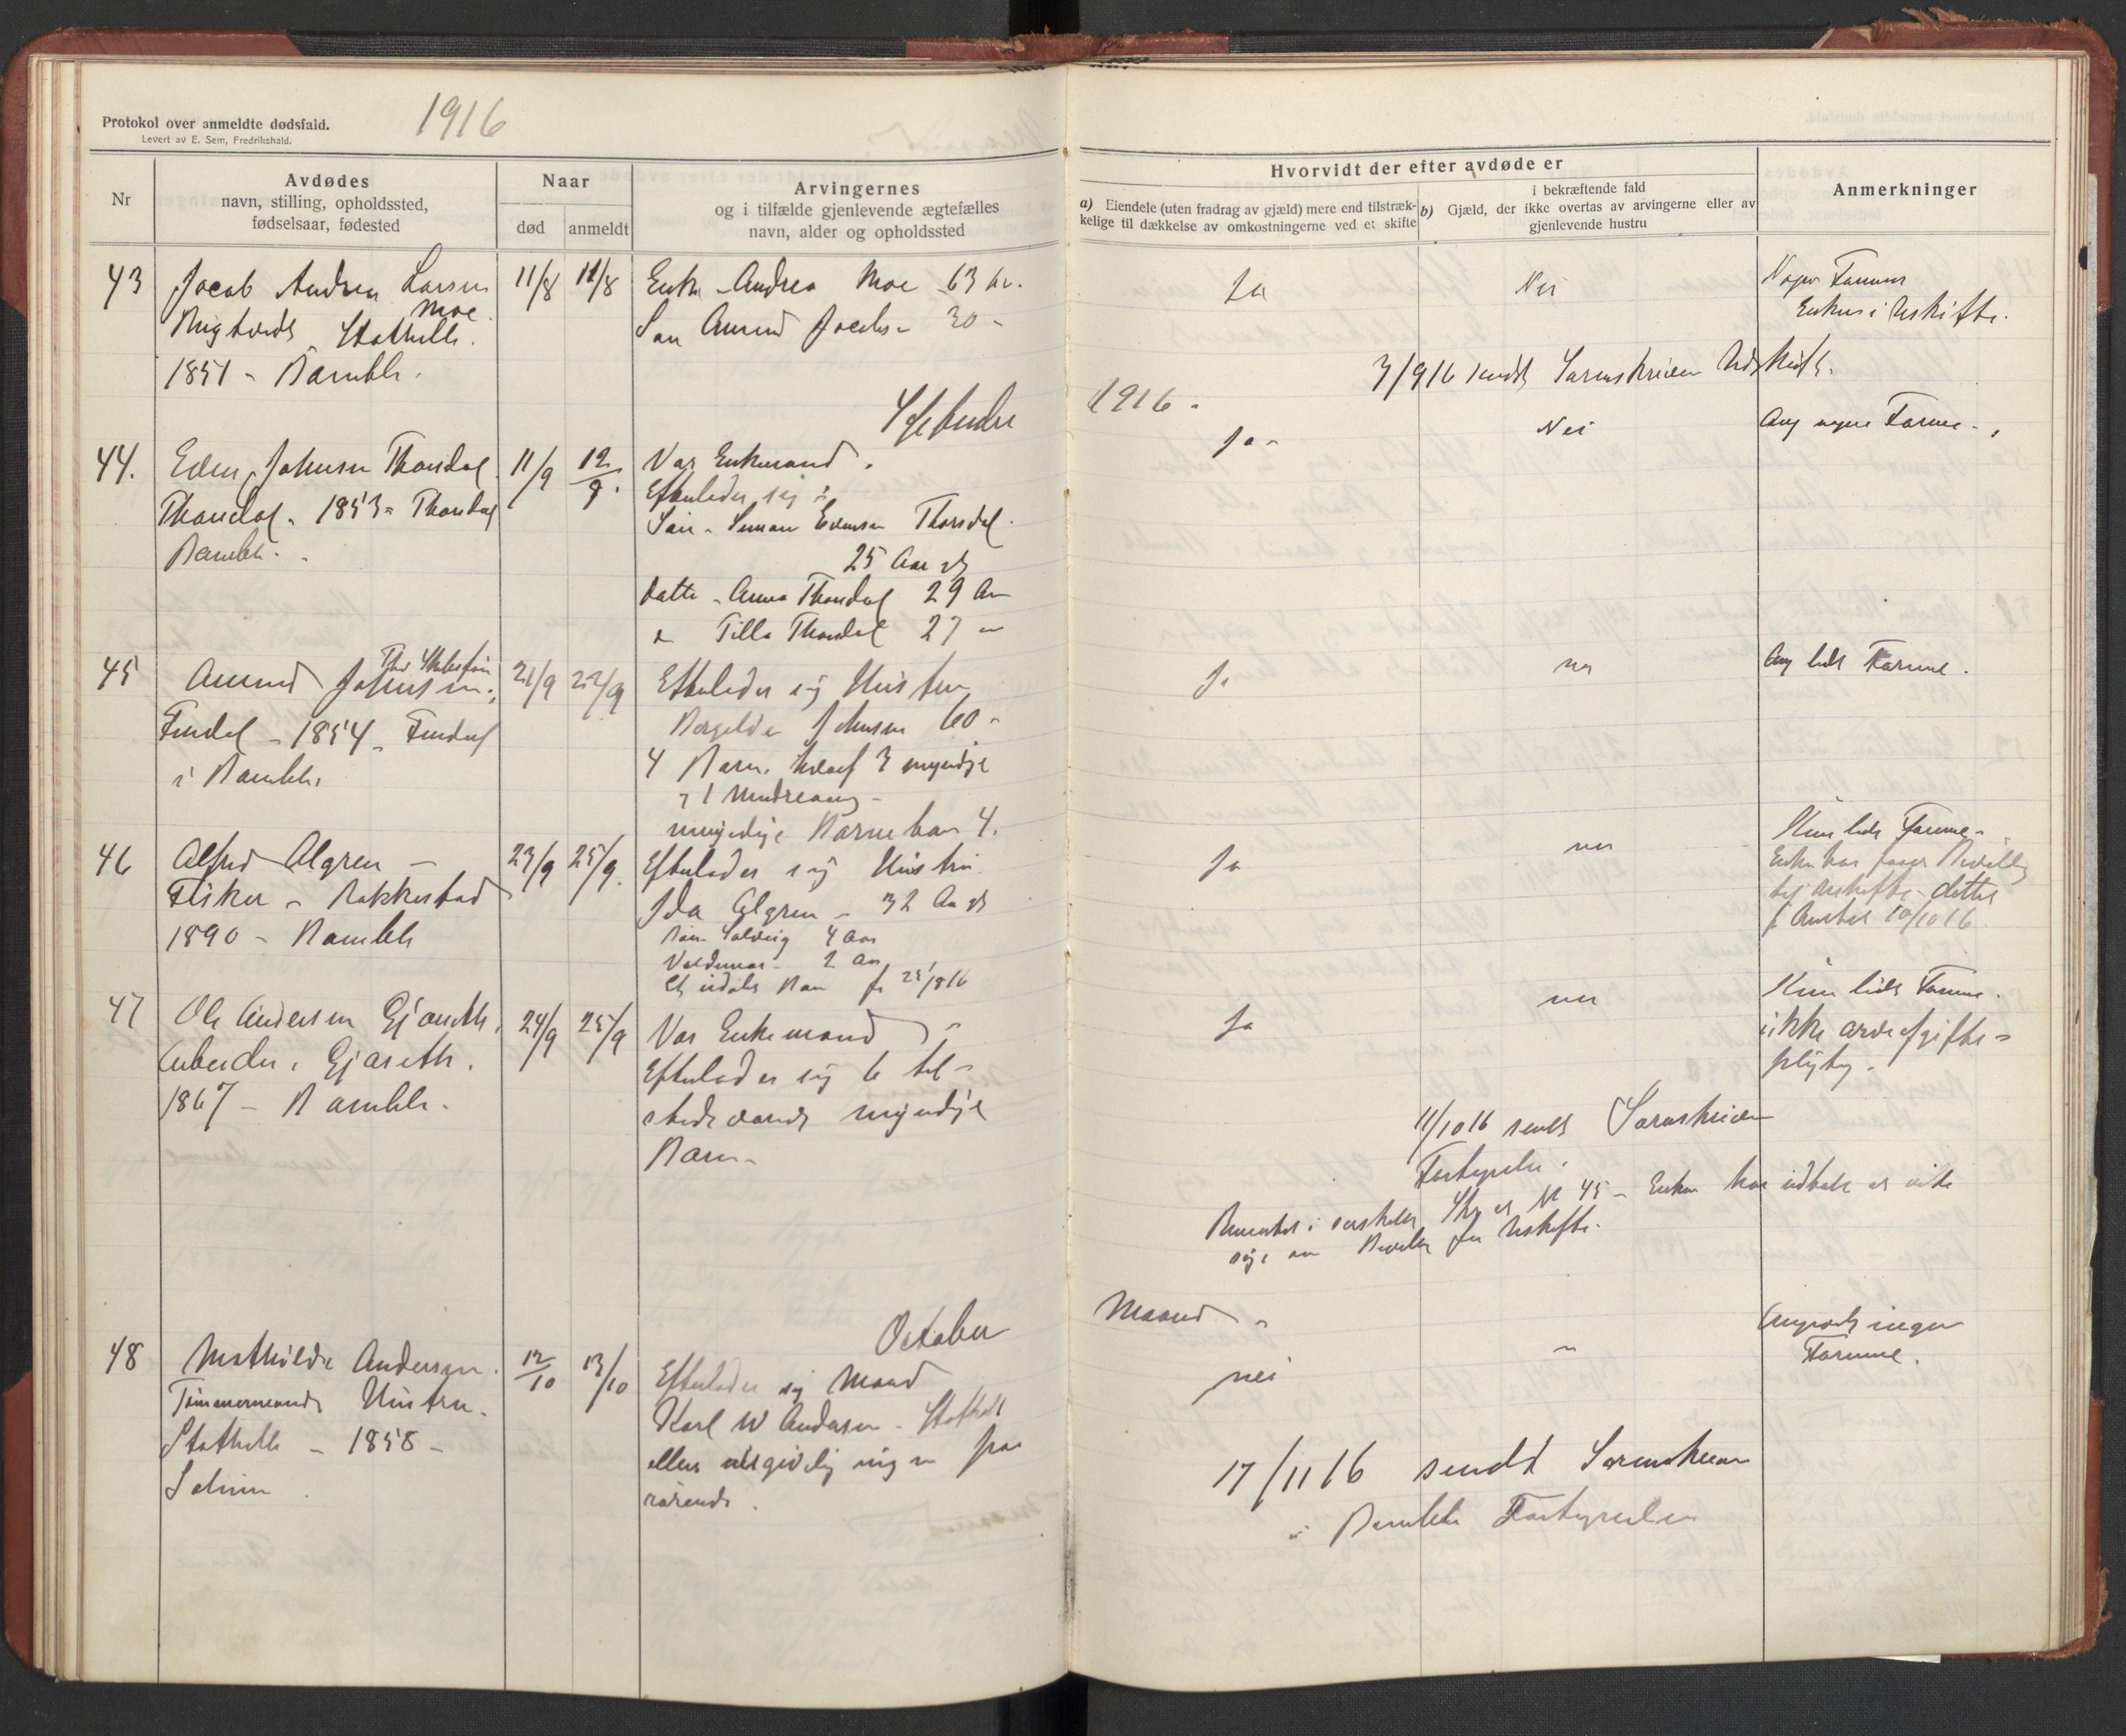 Protokol over anmeldte dødsfald.
Levert av E. Sem, Fredrikshald.
1916
Nr
Avdødes
navn, stilling, opholdssted,
fødselsaar, fødested
Naar
død
anmeldt
Arvingernes
og i tilfælde gjenlevende ægtefælles
navn, alder og opholdssted
Hvorvidt der efter avdøde er
a) Eiendele (uten fradrag av gjæld) mere end tilstræk-
kelige til dækkelse av omkostningerne ved et skifte
i bekræftende fald
b) Gjæld, der ikke overtas av arvingerne eller av
gjenlevende hustru
Anmerkninger
43
Jacob Andrea Larsen
Moe
Stathelle.
1851 - Bamble.
11/8
11/8
Enke Andrea Moe 63 Ar.
Søn Amund 30 -
Ja
Nei
Formue
Enken i Uskifte.
3/9 16 sendt Sorenskriveren
Septembr
1916 -
44.
Johnsen Thorsdal
Thorsdal - 1853 - Thorsdal
Bamble -
11/9
12/9
Var Enkemand.
Efterlader sig:
Søn - Evensen Thorsdal
25 Aar
Datter - Anna Thorsdal 29 Aar
Tilla Thorsdal 27 -
Ja -
Nei
Ang nogen Formue -
45
Amund Johnsen
Findal - 1854 - Findal
i Bamble.
21/9
22/9
Efterlader sig Hustru
Johnsen 60 -
4 Barn, hvoraf 3 myndige
1 Mindreaarig -
myndige Børnebarn 4.
Ja
nei
Ang lidt Formue.
46
Alfred Algren -
Fisker - Rakkestad
1890 - Bamble
23/9
25/9.
Efterlader sig Hustru
Ida Algren - 32 Aar
Barn Solveig 4 Aar
Valdemar - 2 Aar
Ja
nei
Kun lidt Formue -
Enken har faaet Bevilling
til Uskifte - dette
10/10 16
47
Ole Andersen
Arbeider,
1867 - Bamble.
24/9
25/9
Var Enkemand -
Efterlader sig 6 til-
stedeværende myndige
Barn -
Ja
nei
Kun lidt Formue.
ikke arveafgifts-
pligtig -
11/10 16 sendt Sorenskriveren
Fortegnelse.
Nr 45 - Enken har udtalt at ville
søge om Bevilling for Uskifte -
October
Maaned -
48
Mathilde Andersen.
Tømmermands Hustru.
Stathelle - 1858 -
Solum
12/10
13/10
Efterlader sig Mand
Karl W Andersen - Stathelle
ellers ingen paa
rørende.
nei
-
Angivelig ingen
Formue.
17/11 16 sendt Sorenskriveren
i Bamble Fortegnelsen